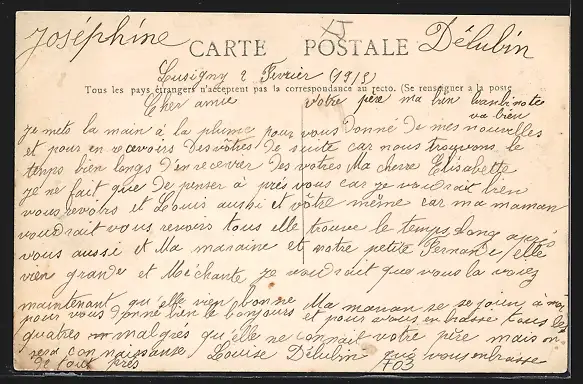 Joséphine Délubin
CARTE POSTALE
Lusigny 2 Fevrier (1918)
Tous les pays étrangers n'acceptent pas la correspondance au recto. (Se renseigner à la poste
Cher amie votre père ma bien
va bien
je mets la main à la plume pour vous donné de mes nouvelles
et pour en recevoirs des votres de suite car nous trouvons le
temps bien longs d'en recevoir des votres Ma cherre Elisabette
je ne fait que de penser à près vous car je voudrait bien
vous revoirs et Louis aussi et votre même car ma maman
voudrait vous revoirs tous elle trouve le temps long après
vous aussi et Ma maraine et votre petite Fernande elle
vien grande et Méchante je voudrait que vous la voyez
maintenant qu'elle vien bonne Ma maman se se joien à moi
pour vous donné bien le bonjours et pour vous en brasse tous les
quatres malgrés qu'elle ne connait votre père mais on
fera connaissance Louise Délubin qui vous enbrasse
de tout près
703